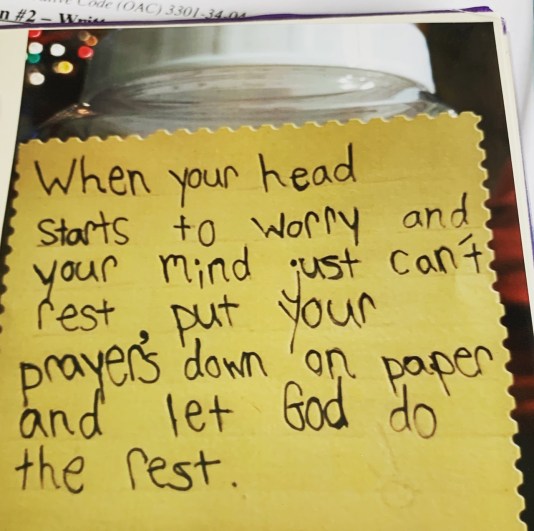 Code (OAC) 3301-34-04
n #2 –
When your head
starts to worry and
your mind just can't
rest, put your
prayer's down on paper
and let God do
the rest.